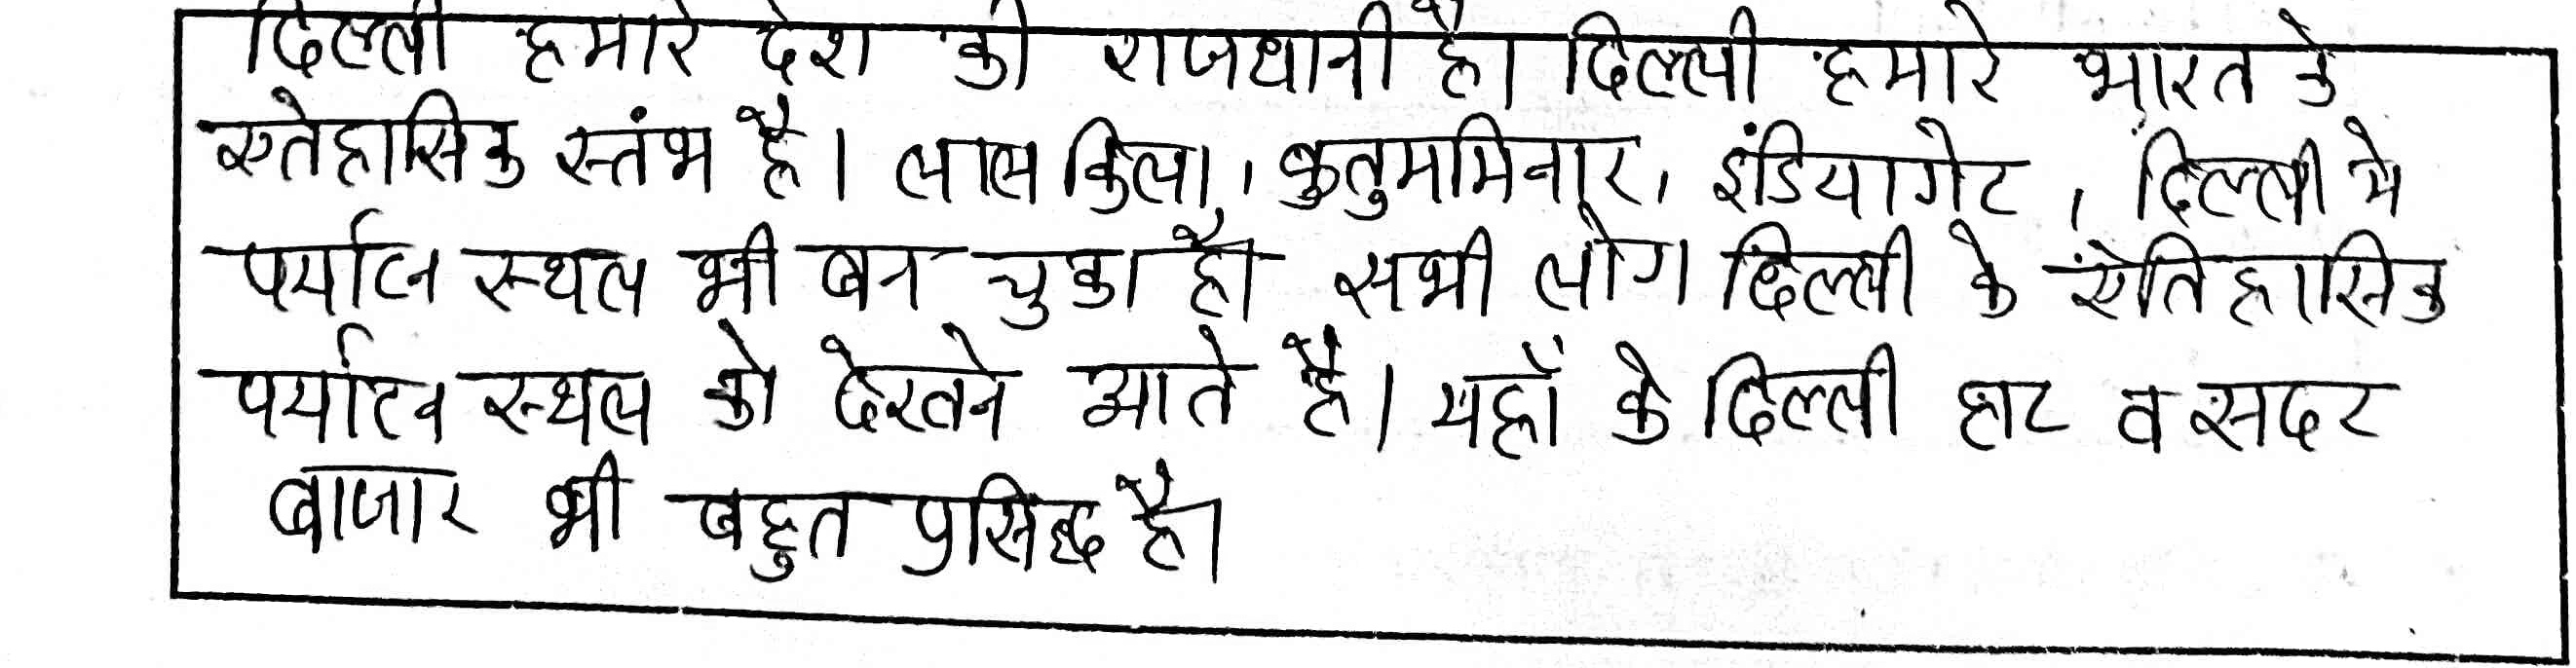 दिल्ली हमारे देश की राजधानी है। दिल्ली हमारे भारत के
एतेहासिक स्तंभ है। लाल किला, कुतुममिनार, इंडिया गेट, दिल्ली मे
पर्याटन स्थल भी बन चुका है। सभी लोग दिल्ली के एेतिहासिक
पर्याटन स्थल को देखने आते है। यहाँ के दिल्ली हाट व सदर
बाजार भी बहुत प्रसिद्ध है।